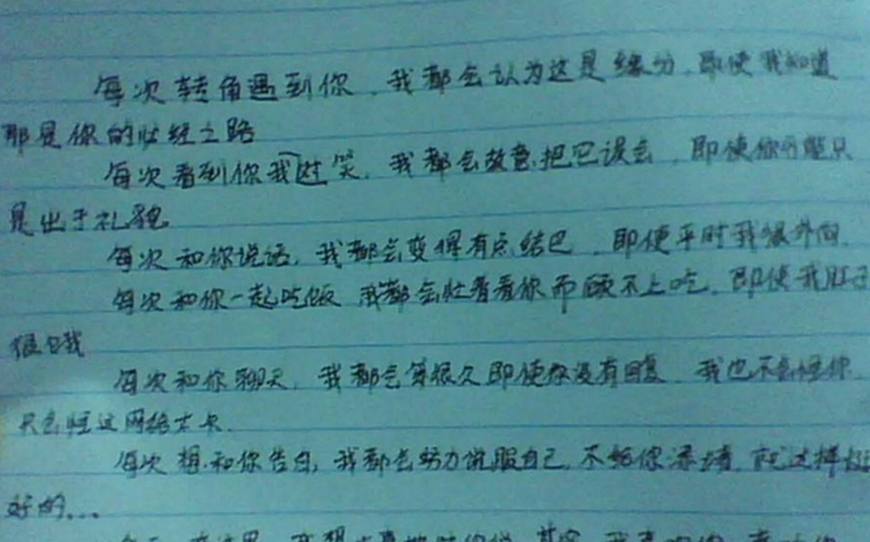 每次转角遇到你，我都会认为这是缘分，即使我知道
那是你的必经之路
每次看到你我对笑，我都会故意把它误会，即使你可能只
是出于礼貌
每次和你说话，我都会变得有点结巴，即使平时我很外向
每次和你一起吃饭 我都会忙着看你而顾不上吃，即使我肚子
很饿
每次和你聊天，我都会等很久即使你没有回复，我也不会怪你
只会怪这网络太卡
每次想和你告白，我都会努力说服自己，不给你添堵，就这样挺
好的...